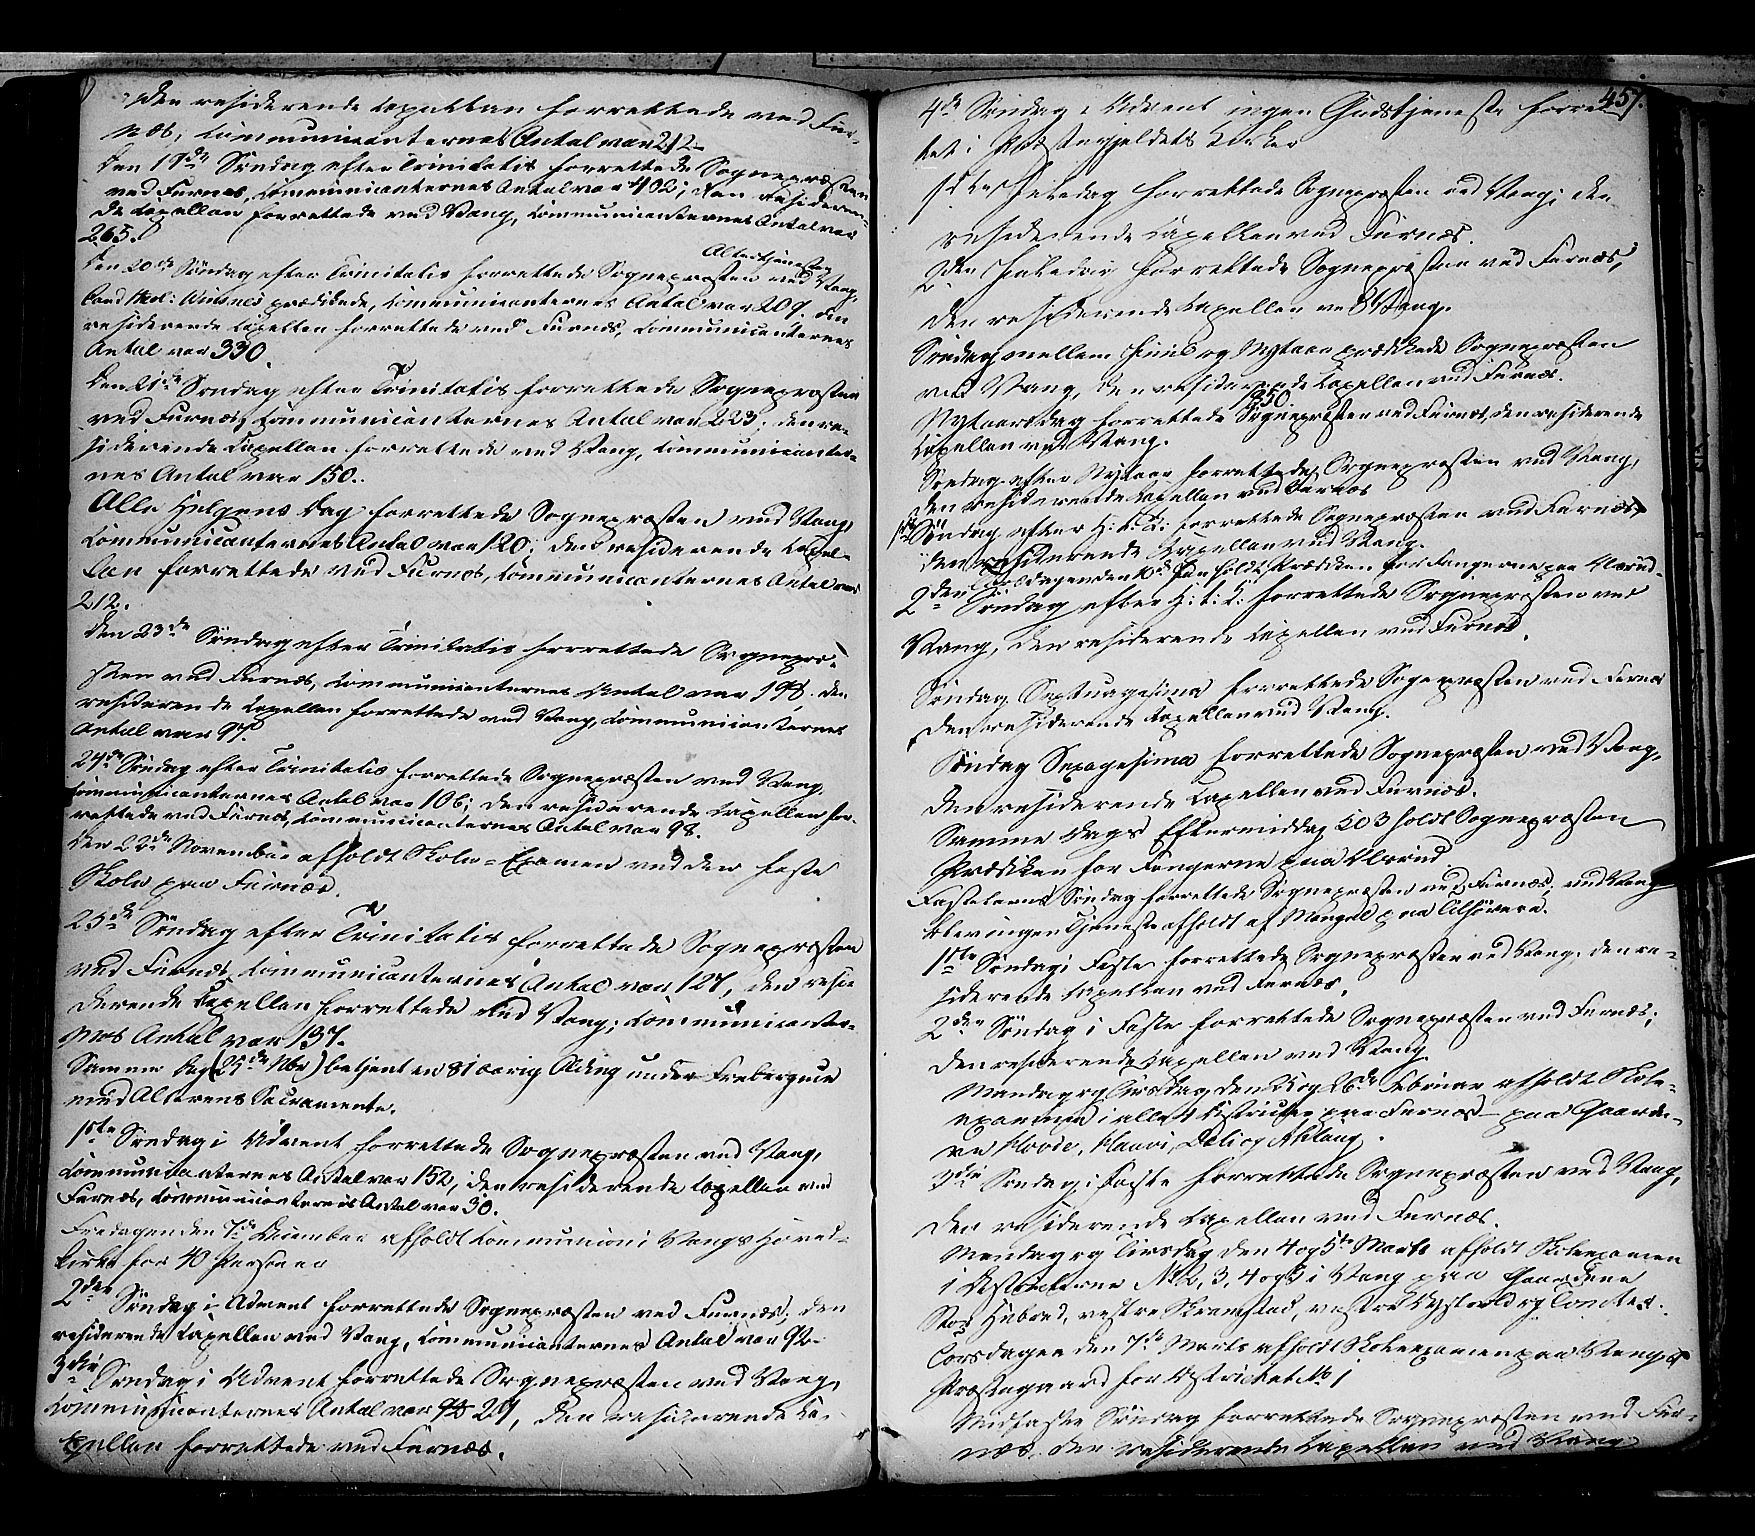 den residerende Capellan forrettede ved Fur-
næs, Communicanternes Antal var 212
Den 19de Søndag efter Trinitatis forrettede Sognepræsten
ved Furnæs, Communicanternes Antal var 402; den resideren-
de Capellan forrettede ved Vang, Communicanternes Antal var
265.
Altertjenesten
Den 20de Søndag efter Trinitatis forrettede Sognepræsten ved Vang,
Cand theol: Winsnes prædikede, Communicanternes Antal var 209. den
residerende Capellan forrettede ved Furnæs, Communicanternes
Antal var 330.
Den 21de Søndag efter Trinitatis forrettede Sognepræsten
ved Furnæs, Communicanternes Antal var 223; den re-
siderende Capellan forrettede ved Vang, Communicanter-
nes Antal var 150.
Alle Helgens Dag forrettede Sognepræsten ved Vang,
Communicanternes Antal var 120; den residerende Capel-
lan forrettede ved Furnæs, Communicanternes Antal var
212.
Den 23de Søndag efter Trinitatis forrettede Sognepræ-
sten ved Furnæs, Communicanternes Antal var 198. den
residerende Capellan forrettede ved Vang, Communicanternes
Antal var 97.
24de Søndag efter Trinitatis forrettede Sognepræsten ved Vang,
Communicanternes Antal var 106; den residerende Capellan for-
rettede ved Furnæs, Communicanternes Antal var 98.
Den 22de November afholdt Skole-Examen ved den faste
Skole paa Furnæs.
25de Søndag efter Trinitatis forrettede Sognepræsten
ved Furnæs, Communicanternes Antal var 127, den resi-
derende Capellan forrettede ved Vang; Communicanter-
nes Antal var 137.
Samme Dag (25de Nbr) betjent en 81 aarig under Freberg
med Alterens Sacramente.
1ste Søndag i Advent forrettede Sognepræsten ved Vang,
Communicanternes Antal var 152, den residerende Capellan ved
Furnæs, Communicanternes Antal var 30.
Fredagen den 7de December afholdt Communion i Vangs Hoved-
kirke for 40 Personer
2den Søndag i Advent forrettede Sognepræsten ved Furnæs; den
residerende Capellan ved Vang, Communicanternes Antal var 92
3die Søndag i Advent forrettede Sognepræsten ved Vang,
Communicanternes Antal var 29, den residerende Ca-
pellan forrettede ved Furnæs.
457.
4de Søndag i Advent ingen Gudstjeneste forret-
tet i Præstegjeldets Kirker
1ste Juledag forrettede Sognepræsten ved Vang; den
residerende Capellan ved Furnæs.
2den Juledag forrettede Sognepræsten ved Furnæs,
den residerende Capellan ved Vang.
Søndag mellem Juul og Nytaar prædikede Sognepræsten
ved Vang, den residerende Capellan ved Furnæs.
1850.
Nytaarsdag forrettede Sognepræsten ved Furnæs, den residerende
Capellan ved Vang.
Søndag efter Nytaar forrettede Sognepræsten ved Vang,
den residerende Capellan ved Furnæs
1ste Søndag efter H: t: K: forrettede Sognepræsten ved Furnæs,
den residerende Capellan ved Vang.
Torsdagen den 10de Jan holdt Prædiken for Fangerne paa
2den Søndag efter H: t: K: forrettede Sognepræsten ved
Vang, den residerende Capellan ved Furnæs.
Søndag Septuagesima forrettede Sognepræsten ved Furnæs
den residerende Capellan ved Vang.
Søndag Sexagesima forrettede Sognepræsten ved Vang,
den residerende Capellan ved Furnæs.
Samme Dags Eftermiddag Kl 3 holdt Sognepræsten
Prædiken for Fangerne paa
Fastelavns Søndag forrettede Sognepræsten ved Furnæs, ved Vang
blev ingen Tjeneste afholdt af Mangel paa Tilhørere.
1ste Søndag i Faste forrettede Sognepræsten ved Vang, den re-
siderende Capellan ved Furnæs.
2den Søndag i Faste forrettede Sognepræsten ved Furnæs;
den residerende Capellan ved Vang
Mandag og Tirsdag den 25 og 26de Februar afholdt Skole-
examen i alle 4 Districter paa Furnæs paa Gaarde-
ne Hovde, Deli og
3die Søndag i Faste forrettede Sognepræsten ved Vang,
den residerende Capellan ved Furnæs.
Mandag og Tirsdag den 4 og 5te Marts afholdt Skoleexamen
i Districterne No 2, 3, 4 og 5 i Vang paa Gaardene
Stor Hubred, vestre Skramstad, vestre og
Torsdagen den 7de Marts afholdt Skoleexamen paa Vangs
Præstegaard for Districtet No 1
Midfaste Søndag forrettede Sognepræsten ved Fur-
næs, den residerende Capellan ved Vang